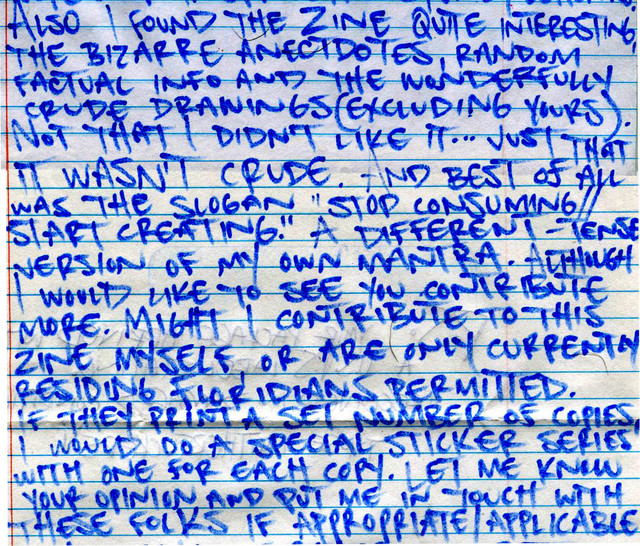 ALSO I FOUND THE ZINE QUITE INTERESTING,
THE BIZARRE ANECTDOTES, RANDOM
FACTUAL INFO AND THE WONDERFULLY
CRUDE DRAWINGS (EXCLUDING YOURS).
NOT THAT I DIDN'T LIKE IT... JUST THAT
IT WASN'T CRUDE. AND BEST OF ALL
WAS THE SLOGAN "STOP CONSUMING//
START CREATING." A DIFFERENT-TENSE
VERSION OF MY OWN MANTRA. ALTHOUGH
I WOULD LIKE TO SEE YOU CONTRIBUTE
MORE. MIGHT I CONTRIBUTE TO THIS
ZINE MYSELF, OR ARE ONLY CURRENTLY
RESIDING FLORIDIANS PERMITTED.
IF THEY PRINT A SET NUMBER OF COPIES,
I WOULD DO A SPECIAL STICKER SERIES
WITH ONE FOR EACH COPY. LET ME KNOW
YOUR OPINION AND PUT ME IN TOUCH WITH
THESE FOLKS IF APPROPRIATE/APPLICABLE